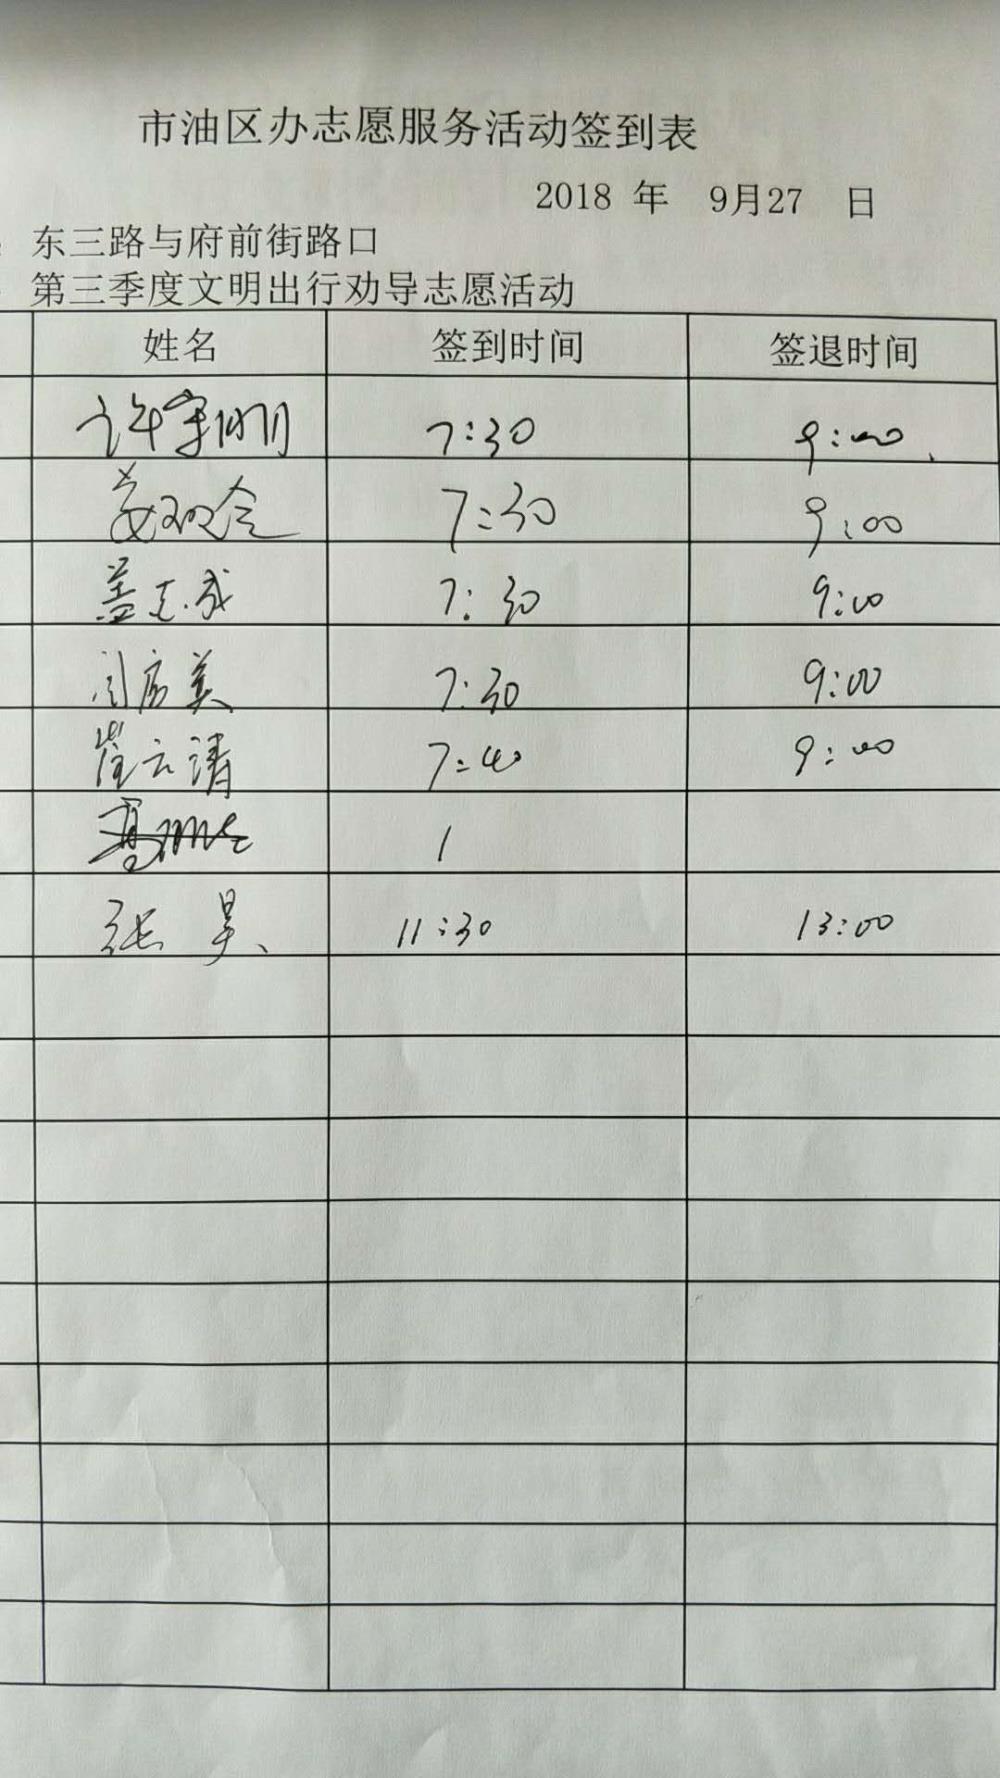 市油区办志愿服务活动签到表
2018 年 9月27 日
东三路与府前街路口
第三季度文明出行劝导志愿活动
姓名 签到时间 签退时间
7:30 9:00
7:30 9:00
盖志成 7:30 9:00
7:30 9:00
崔云清 7:40 9:00
张昊 11:30 13:00